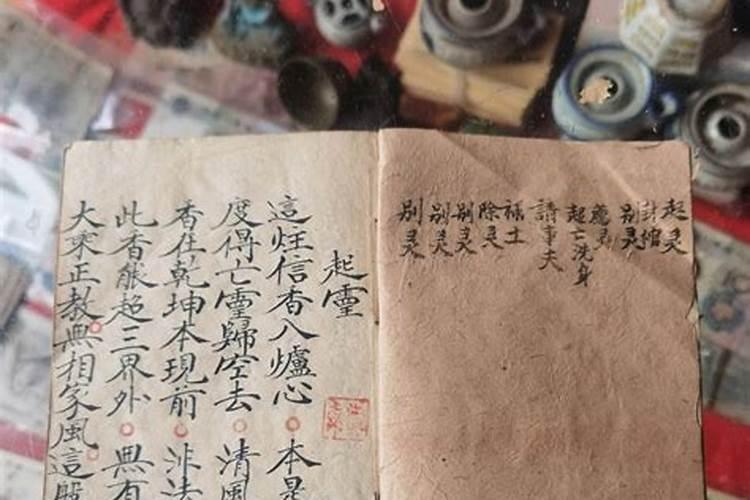 起灵
封棺
别灵
起亡洗身
請事夫
除灵
别灵
别灵
别灵
起靈
這炷信香入爐心 本是
度得亡靈歸空去 清風
香在乾坤本現前 非法
此香能超三界外 無有
大乘正教無相家風這般